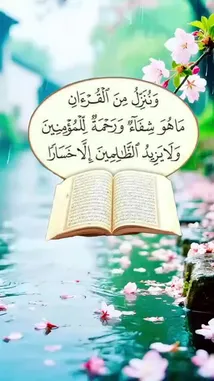 وَنُنَزِّلُ مِنَ ٱلْقُرْءَانِ
مَاهُوَ شِفَآءٌ وَرَحْمَةٌ لِّلْمُؤْمِنِينَ
وَلَا يَزِيدُ ٱلظَّٰلِمِينَ إِلَّا خَسَارًا